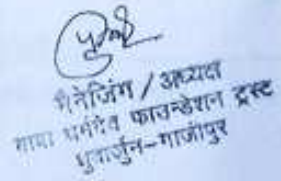 मैनेजिंग / अध्यक्ष
माया धर्मदेव फाउन्डेशन ट्रस्ट
भुवार्जुन-गाजीपुर